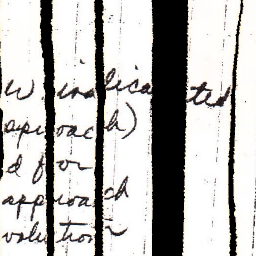 w indicated
aproach)
d for
approach
volution